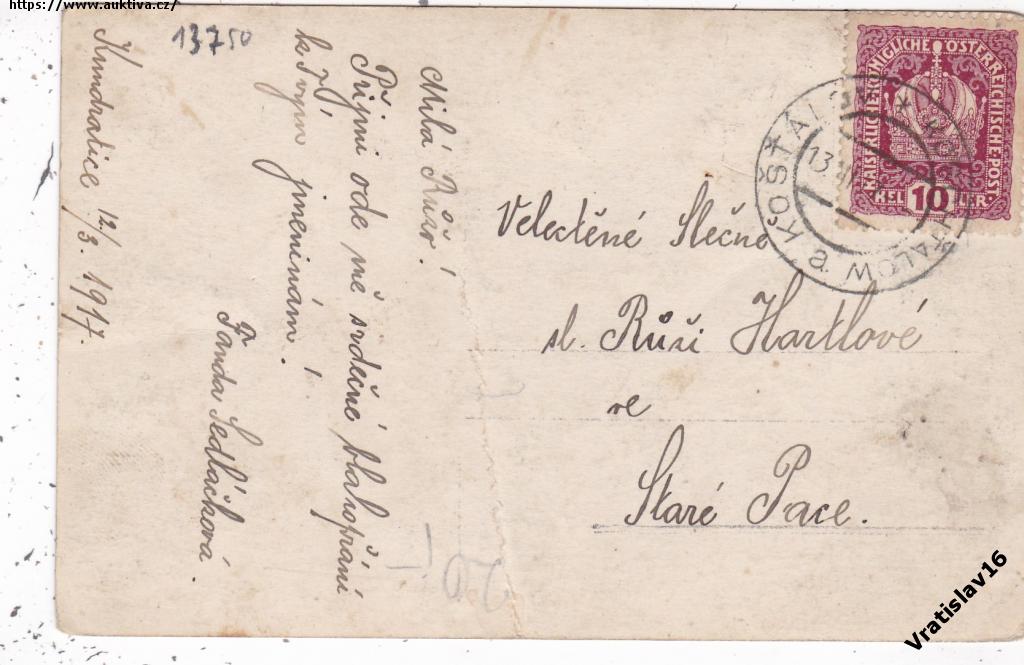 https://www.auktiva.cz/
13750
Milá Růšo!
Přijmi ode mě srdečné blahopřání
k Tvým jmeninám!
Fanda Sedláčková.
Kundratice 12/3. 1917.
KAISERLICHE KÖNIGLICHE ÖSTERREICHISCHE POST
HEL 10 LER
KOŠŤÁLOV * KOSCHTALOW a
13
Velectěné Slečně
sl. Růži Hartlové
ve
Staré Pace.
Vratislav16